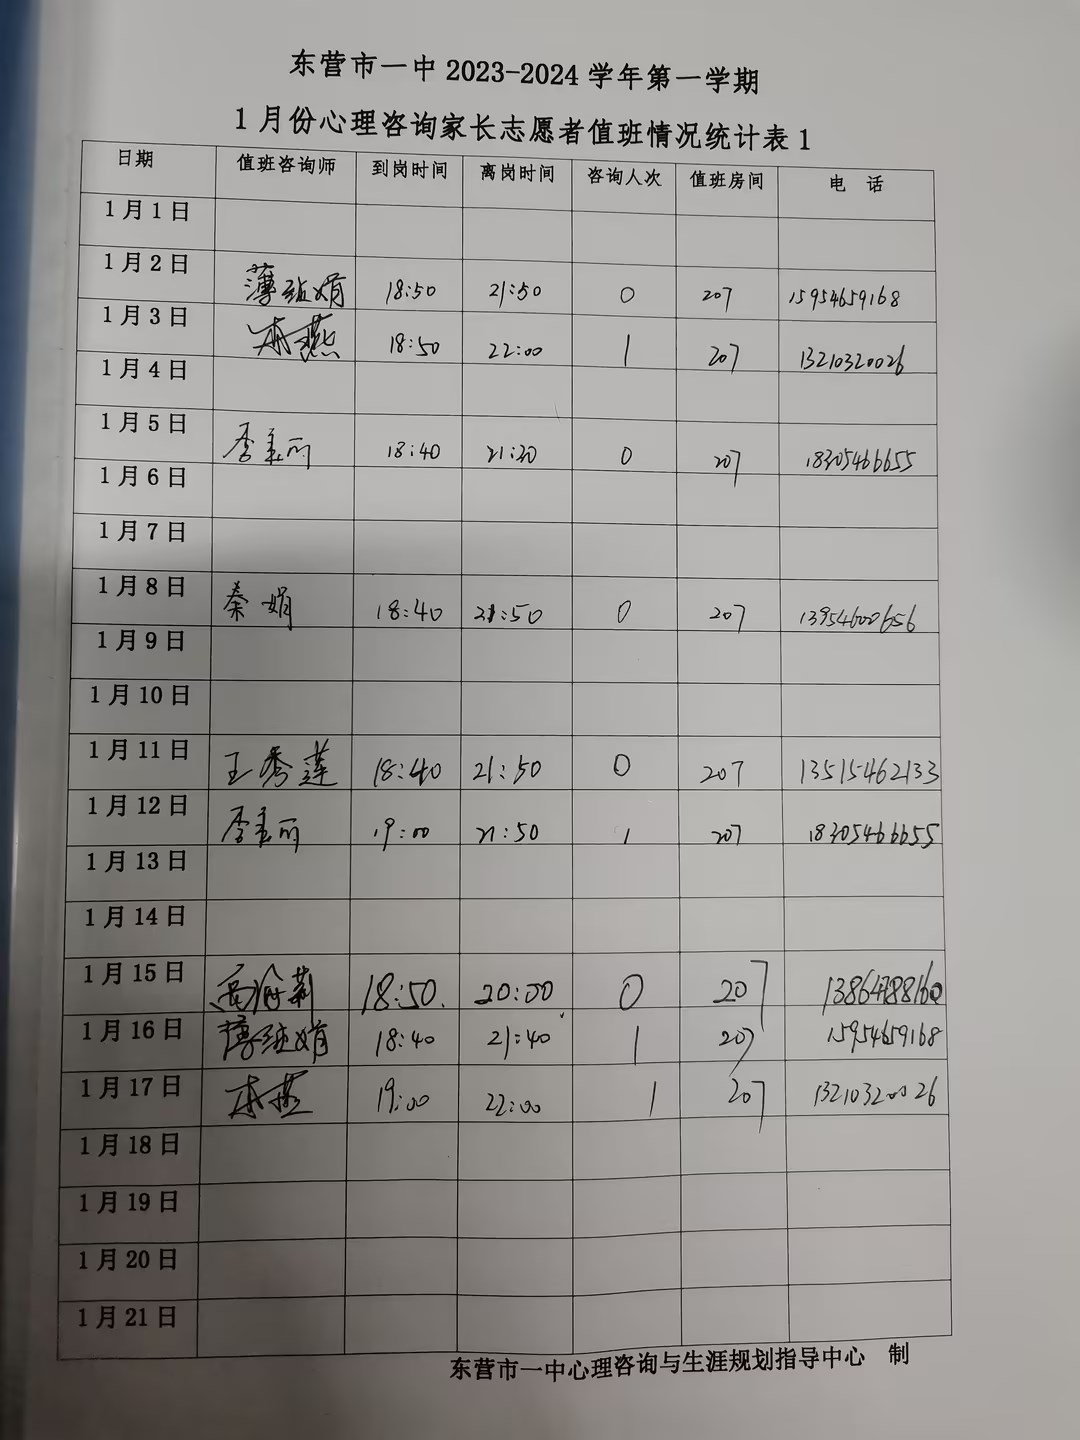 东营市一中 2023-2024 学年第一学期
1 月份心理咨询家长志愿者值班情况统计表 1
日期 值班咨询师 到岗时间 离岗时间 咨询人次 值班房间 电 话
1 月 1 日
1 月 2 日 薄 娟 18:50 21:50 0 207 15954659168
1 月 3 日 燕 18:50 22:00 1 207 13210320026
1 月 4 日
1 月 5 日 李 丽 18:40 21:20 0 207 18305466655
1 月 6 日
1 月 7 日
1 月 8 日 秦娟 18:40 21:50 0 207 13954600656
1 月 9 日
1 月 10 日
1 月 11 日 王秀莲 18:40 21:50 0 207 13515462133
1 月 12 日 李 丽 19:00 21:50 1 207 18305466655
1 月 13 日
1 月 14 日
1 月 15 日 莉 18:50 20:00 0 207
1 月 16 日 薄 娟 18:40 21:40 1 207 15954659168
1 月 17 日 燕 19:00 22:00 1 207 13210320026
1 月 18 日
1 月 19 日
1 月 20 日
1 月 21 日
东营市一中心理咨询与生涯规划指导中心 制